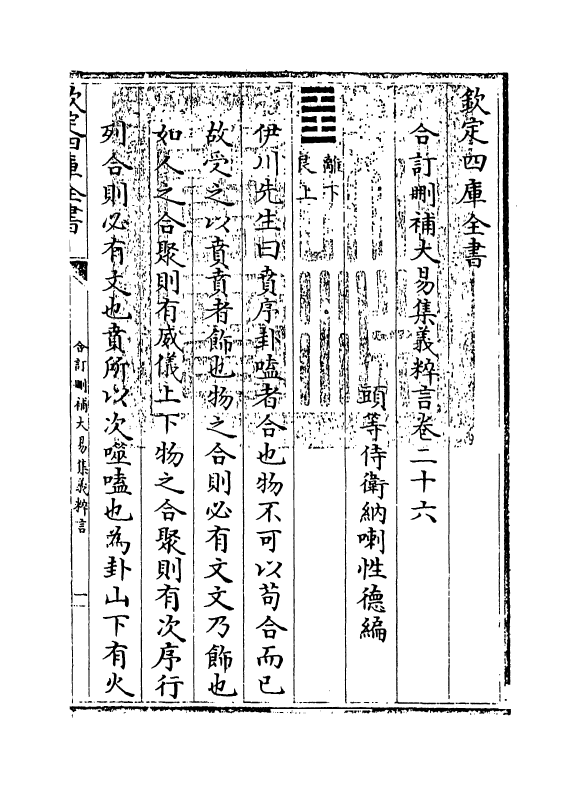 欽定四庫全書
合訂刪補大易集義粹言卷二十六
頭等侍衛納喇性德編
離下
艮上
伊川先生曰賁序卦嗑者合也物不可以苟合而已
故受之以賁賁者飾也物之合則必有文文乃飾也
如人之合聚則有威儀上下物之合聚則有次序行
列合則必有文也賁所以次噬嗑也為卦山下有火
欽定四庫全書
合訂刪補大易集義粹言
一